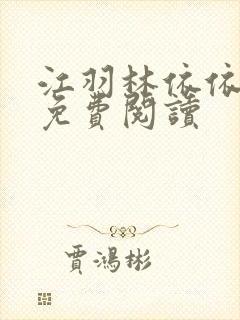 江羽林依依
免費閱讀
賈鴻彬